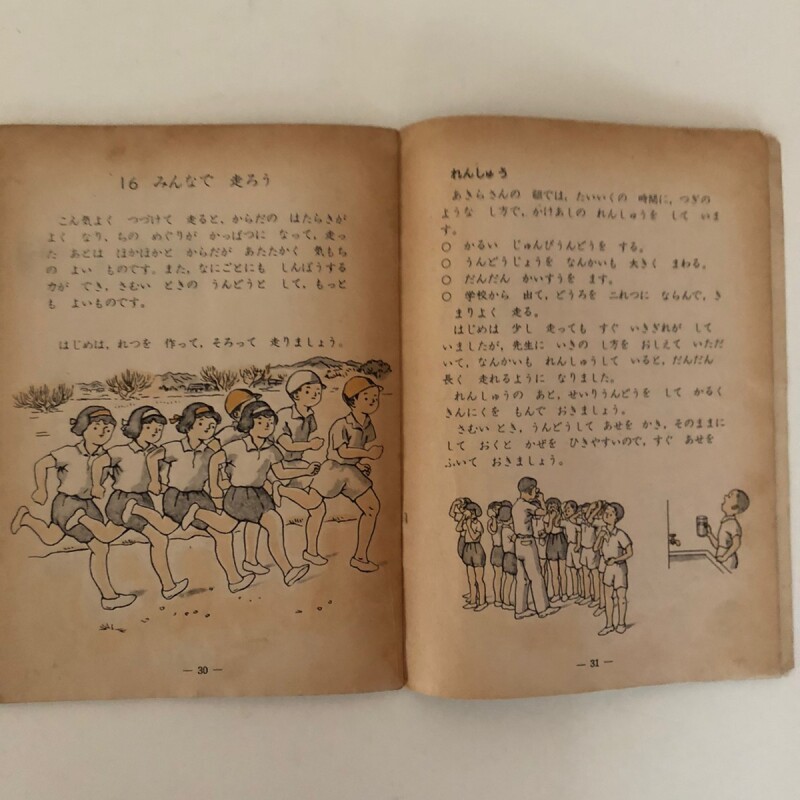 16 みんなで 走ろう
こん気よく つづけて 走ると、からだの はたらきが
よく なり、ちの めぐりが かっぱつに なって、走っ
た あとは ほかほかと からだが あたたかく 気もち
の よい ものです。また、なにごとにも しんぼうする
力が でき、さむい ときの うんどうと して、もっと
も よいものです。
はじめは、れつを 作って、そろって 走りましょう。
— 30 —
れんしゅう
あきらさんの 組では、たいいくの 時間に、つぎの
ような し方で、かけあしの れんしゅうを して いま
す。
○ かるい じゅんびうんどうを する。
○ うんどうじょうを なんかいも 大きく まわる。
○ だんだん かいすうを ます。
○ 学校から 出て、どうろを 二れつに ならんで、き
まりよく 走る。
はじめは 少し 走っても すぐ いきぎれが して
いましたが、先生に いきの し方を おしえて いただ
いて、なんかいも れんしゅうして いると、だんだん
長く 走れるように なりました。
れんしゅうの あと、せいりうんどうを して かるく
きんにくを もんで おきましょう。
さむい とき、うんどうして あせを かき、そのままに
して おくと かぜを ひきやすいので、すぐ あせを
ふいて おきましょう。
— 31 —